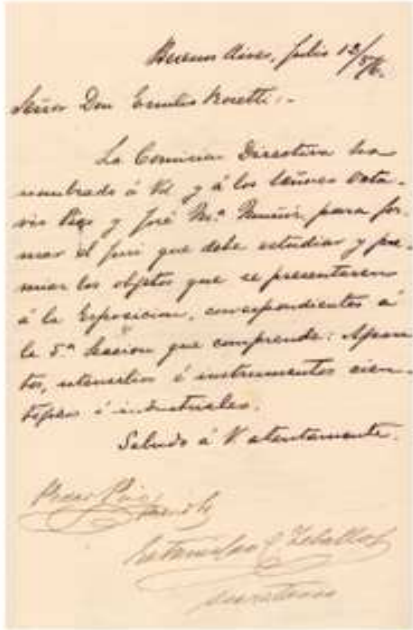 Buenos Aires, Julio 12/876.
Señor Don Emilio Rosetti.-
La Comision Directiva ha
nombrado á Vd y á los Señores Octa-
vio Pico y José Mª Muñiz, para for-
mar el Juri que debe estudiar y pre-
miar los objetos que se presentaren
á la Esposicion, correspondientes á
la 5ª Seccion que comprende: Apara-
tos, utensilios é instrumentos cien-
tificos é industriales.
Saludo á V atentamente.
Pedro Pico
Estanislao S. Zeballos
secretario